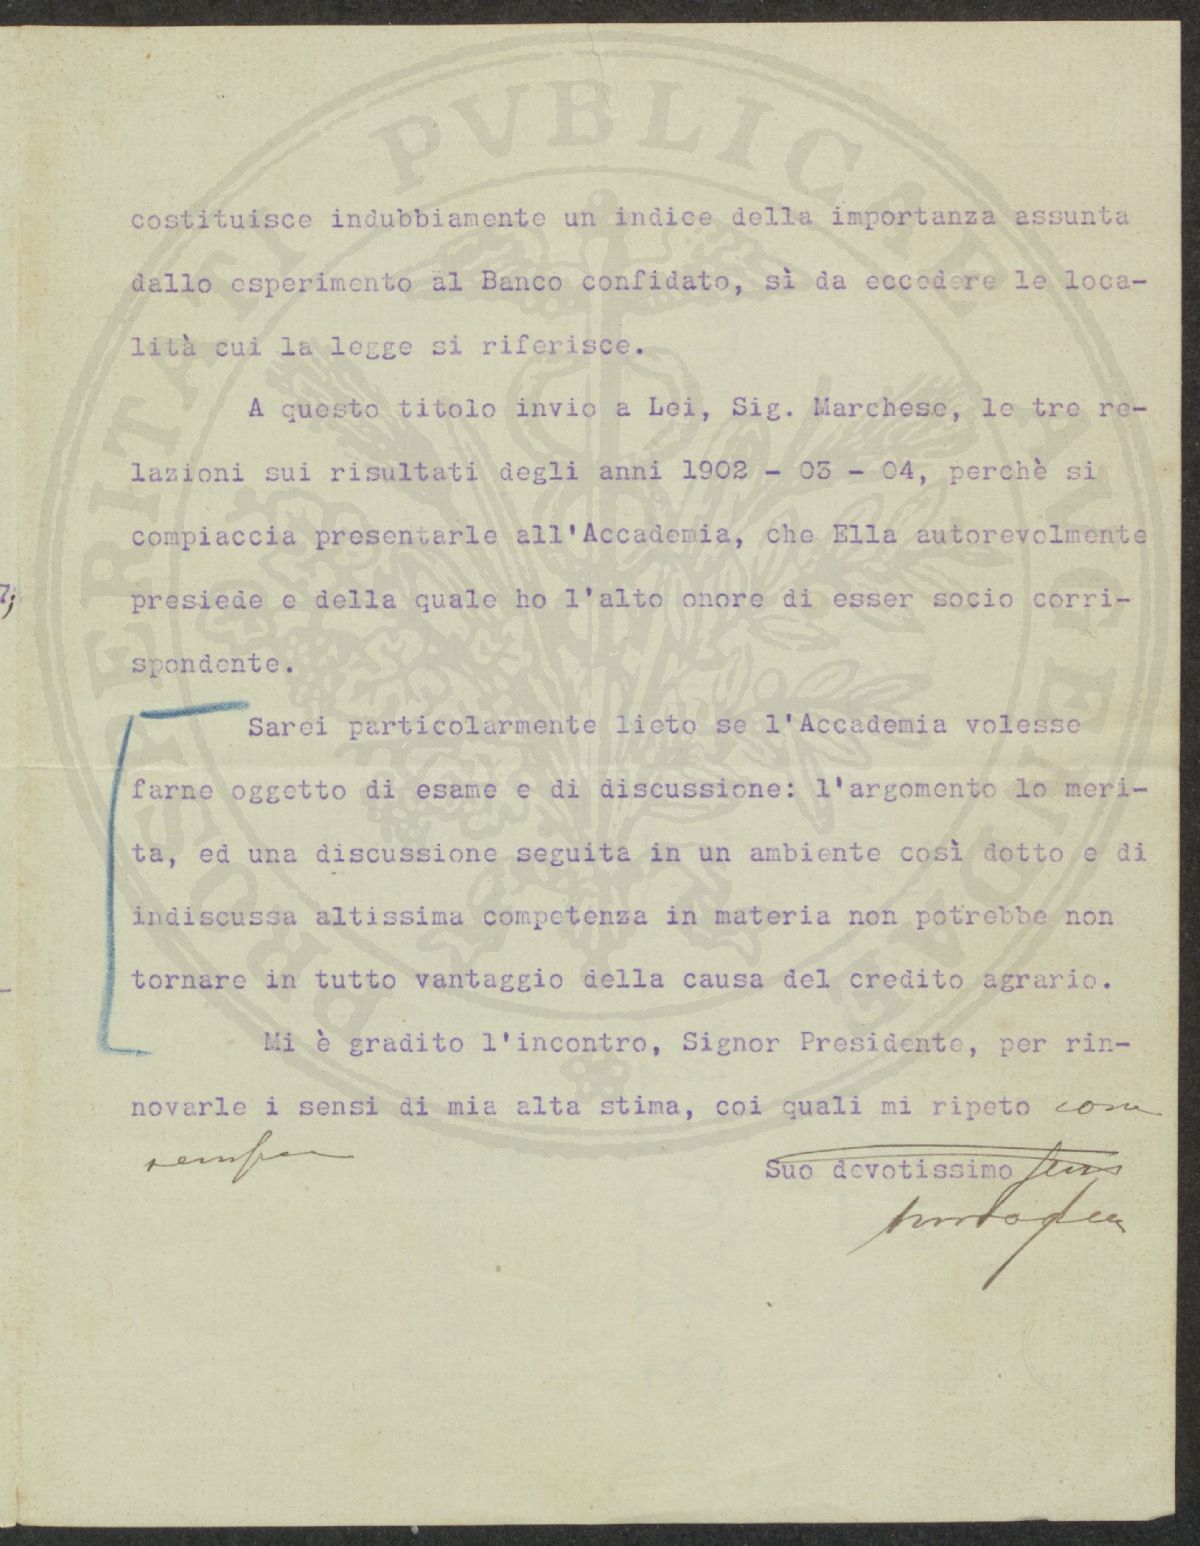 PROSPERITATI PVBLICAE AVGENDAE
costituisce indubbiamente un indice della importanza assunta
dallo esperimento al Banco confidato, sì da eccedere le loca-
lità cui la legge si riferisce.
A questo titolo invio a Lei, Sig. Marchese, le tre re-
lazioni sui risultati degli anni 1902 - 03 - 04, perchè si
compiaccia presentarle all'Accademia, che Ella autorevolmente
presiede e della quale ho l'alto onore di esser socio corri-
spondente.
Sarei particolarmente lieto se l'Accademia volesse
farne oggetto di esame e di discussione: l'argomento lo meri-
ta, ed una discussione seguita in un ambiente così dotto e di
indiscussa altissima competenza in materia non potrebbe non
tornare in tutto vantaggio della causa del credito agrario.
Mi è gradito l'incontro, Signor Presidente, per rin-
novarle i sensi di mia alta stima, coi quali mi ripeto come
sempre
Suo devotissimo